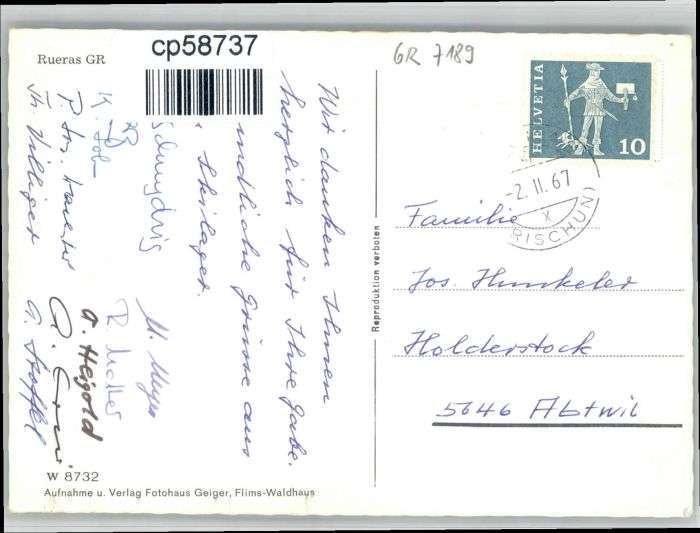 Rueras GR
cp58737
GR 7189
HELVETIA
10
-2.II.67
X
(RISCHUN)
Wir danken Ihnen
herzlich für Ihre Gabe.
undliche Grüsse aus
Skilager.
M. Meyer
R Müller
A. Heigold
A. Stoffel
Th. Villiger
Familie
Jos. Hunkeler
Holderstock
5646 Abtwil
Reproduktion verboten
W 8732
Aufnahme u. Verlag Fotohaus Geiger, Flims-Waldhaus